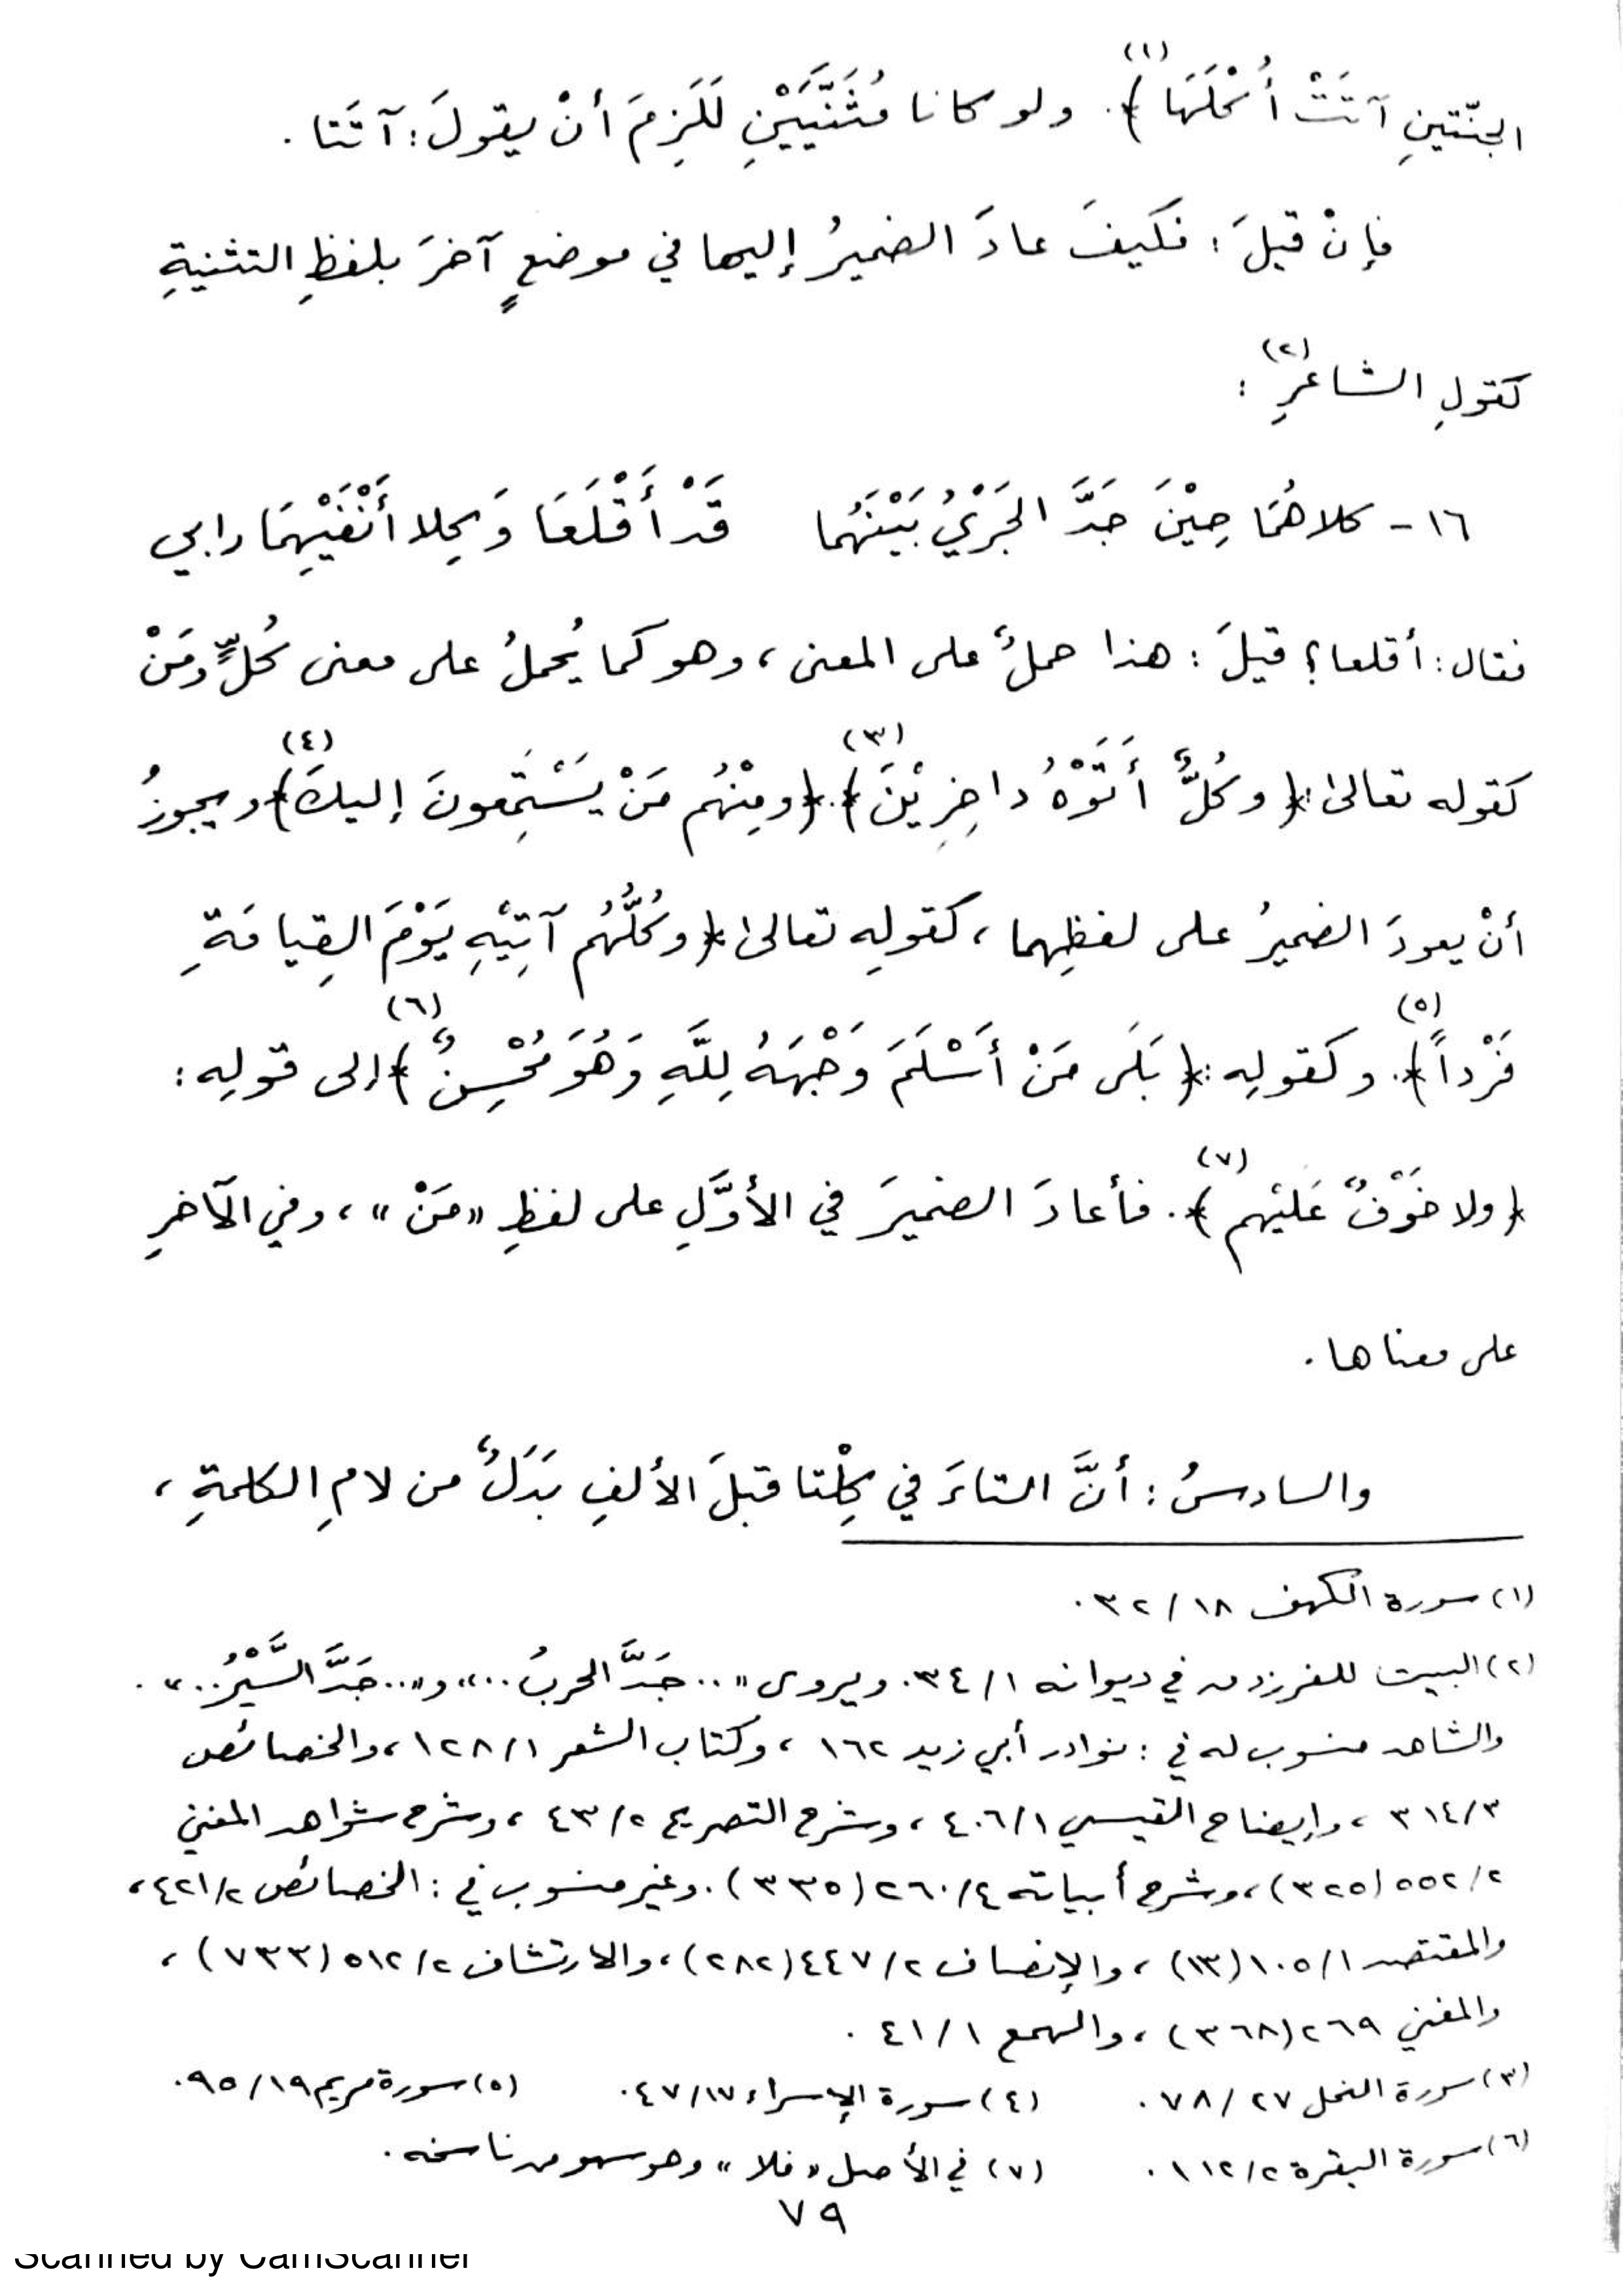 الجنّتينِ آتَتْ أُكُلَهَا ﴾(١). ولو كانا مُثَنَّيَيْنِ لَلَزِمَ أنْ يقولَ: آتَتا .
فإنْ قيلَ : فكيفَ عادَ الضميرُ إليهما في موضعٍ آخرَ بلفظِ التثنيةِ
كقولِ الشاعرِ(٢) :
١٦ - كلاهُمَا حِيْنَ جَدَّ الجَرْيُ بَيْنَهُما قَدْ أَقْلَعَا وَكِلا أَنْفَيْهِمَا رابي
فقال : أقلعا؟ قيلَ : هذا حملٌ على المعنى ، وهو كما يُحملُ على معنى كُلٍّ ومَنْ
كقوله تعالى: ﴿ وكُلٌّ أَتَوْهُ داخِرِيْنَ ﴾(٣). ﴿ ومِنْهُم مَنْ يَسْتَمِعونَ إليكَ ﴾(٤) ويجوزُ
أنْ يعودَ الضميرُ على لفظِهما ، كقولِه تعالى ﴿ وكُلُّهُم آتِيْهِ يَوْمَ القِيامَةِ
فَرْداً ﴾(٥). وكقولِه : ﴿ بَلَى مَنْ أَسْلَمَ وَجْهَهُ لِلَّهِ وَهُوَ مُحْسِنٌ ﴾(٦) إلى قولِه :
﴿ ولا خَوْفٌ عَلَيْهم ﴾(٧). فأعادَ الضميرَ في الأوَّلِ على لفظِ «مَنْ» ، وفي الآخرِ
على معناها .
والسادسُ : أنَّ التاءَ في كِلْتا قبلَ الألفِ بَدَلٌ من لامِ الكلمةِ ،
(١) سورة الكهف ١٨ / ٣٢ .
(٢) البيت للفرزدق في ديوانه ١ / ٣٤. ويروى «.. جَدَّ الحربُ ..» و«.. جَدَّ السَّيْرُ ..» .
والشاهد منسوب له في : نوادر أبي زيد ١٦٢ ، وكتاب الشعر ١ / ١٢٨ ، والخصائص
٣ / ٣١٤ ، وإيضاح القيسي ١ / ٤٠٦ ، وشرح التصريح ٢ / ٤٣ ، وشرح شواهد المغني
٢ / ٥٥٢ (٣٢٥) ، وشرح أبياته ٤ / ٢٦٠ (٣٣٥) . وغير منسوب في : الخصائص ٢ / ٤٢١ ،
والمقتصد ١ / ١٠٥ (١٣) ، والإنصاف ٢ / ٤٤٧ (٢٨٢) ، والارتشاف ٢ / ٥١٢ (٧٣٣) ،
والمغني ٢٦٩ (٣٦٨) ، والهمع ١ / ٤١ .
(٣) سورة النمل ٢٧ / ٧٨ . (٤) سورة الإسراء ١٧ / ٤٧ . (٥) سورة مريم ١٩ / ٩٥ .
(٦) سورة البقرة ٢ / ١١٢ . (٧) في الأصل «فلا» وهو سهو من ناسخه .
٧٩
Scanned by CamScanner